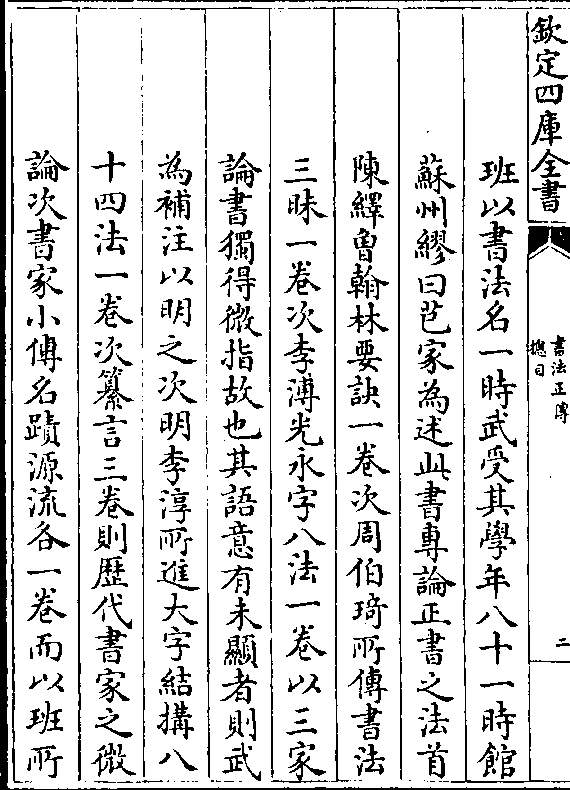 欽定四庫全書
書法正傳
總目
二
班以書法名一時武受其學年八十一時館
蘇州繆曰芑家為述此書專論正書之法首
陳繹曾翰林要訣一卷次周伯琦所傳書法
三昧一卷次李溥光永字八法一卷以三家
論書獨得微指故也其語意有未顯者則武
為補注以明之次明李淳所進大字結搆八
十四法一卷次纂言三卷則歷代書家之微
論次書家小傳名蹟源流各一卷而以班所